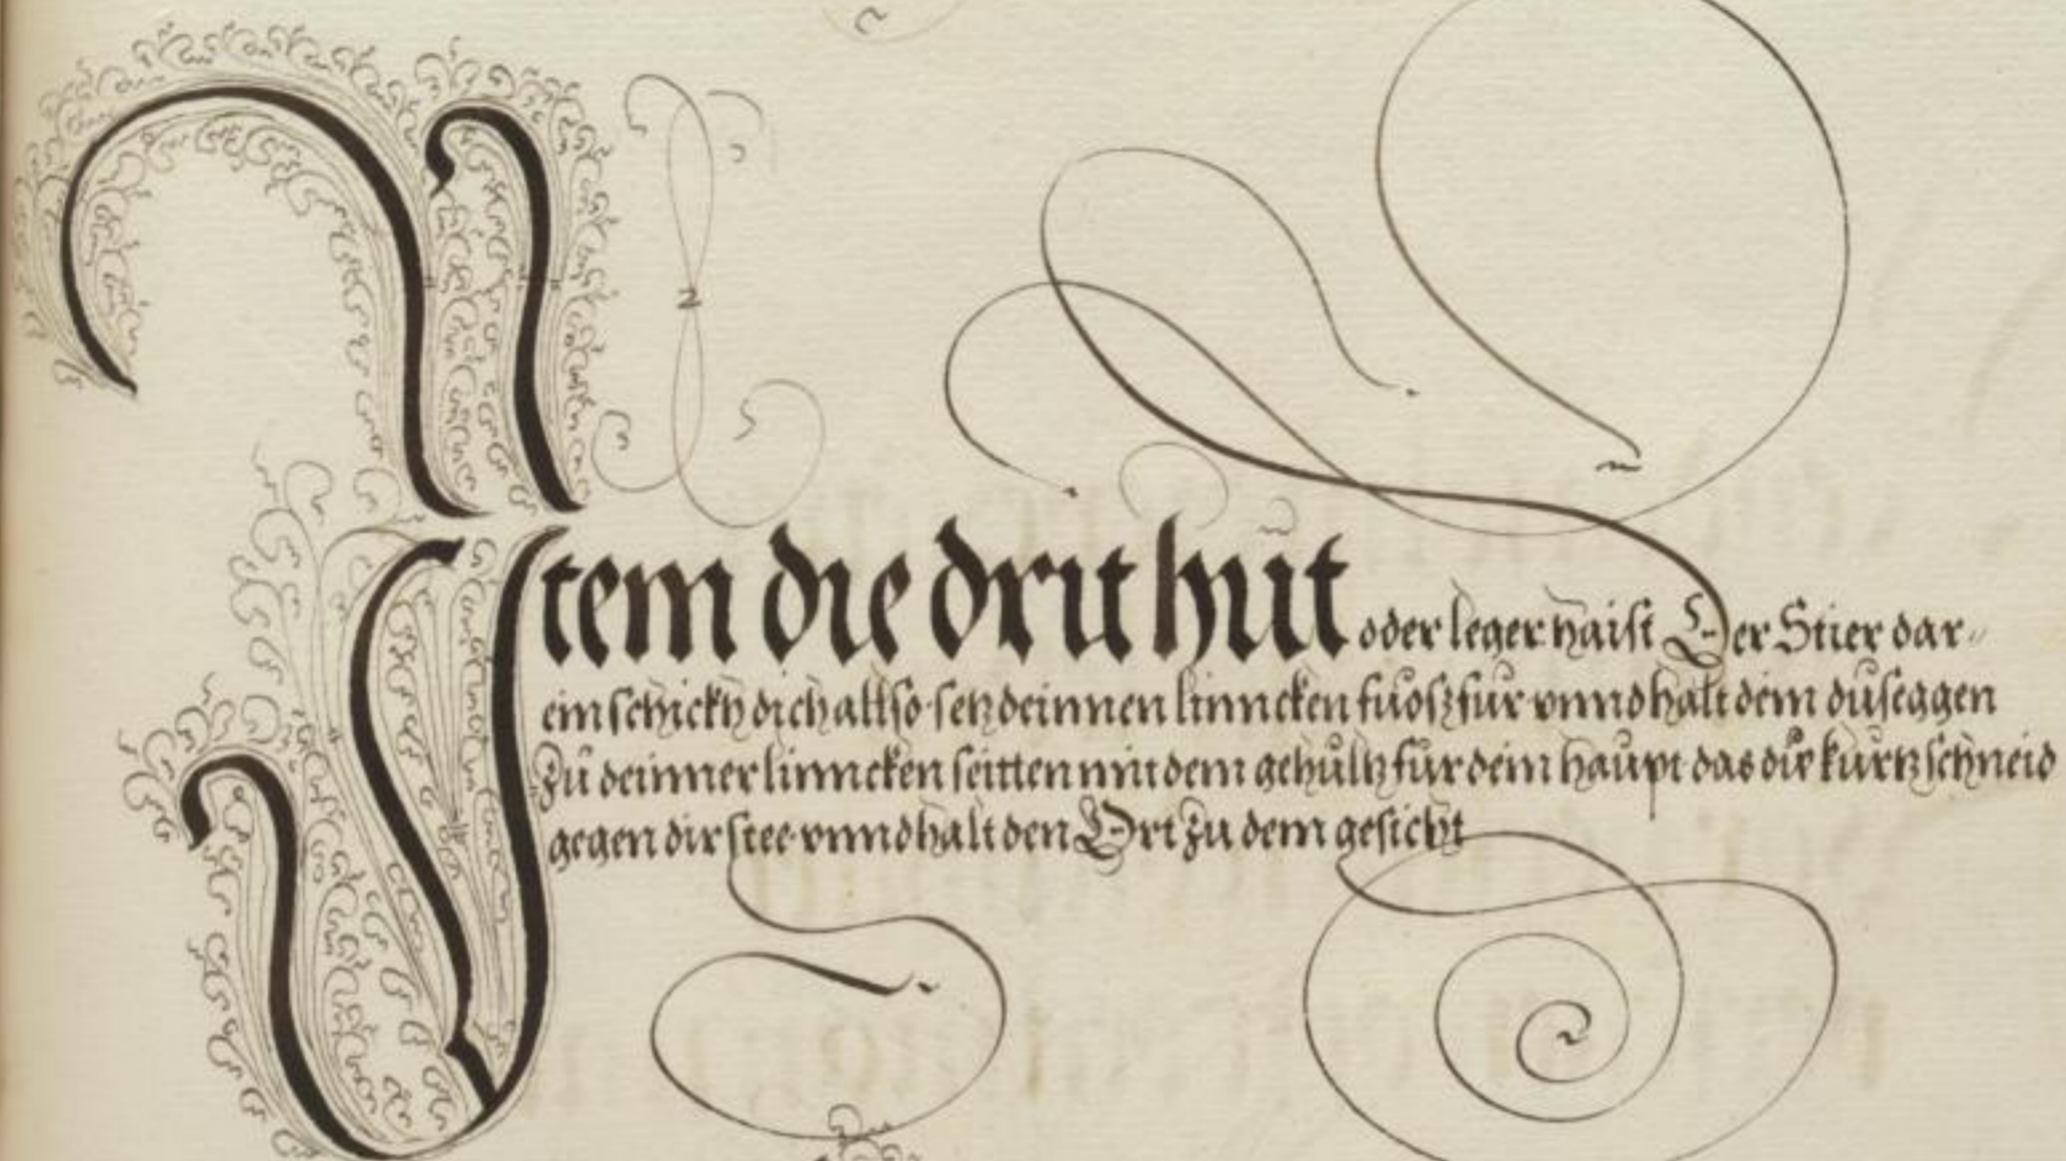 Item die drit hut oder leger haist Der Stier dar-
ein schickh dich allso setz deinnen linncken fuosz fur vnnd halt dein duseggen
Zu deinner linncken seitten mit dem gehultz fur dein haupt das die kurtz schneid
gegen dir stee vnnd halt den Ort zu dem gesicht